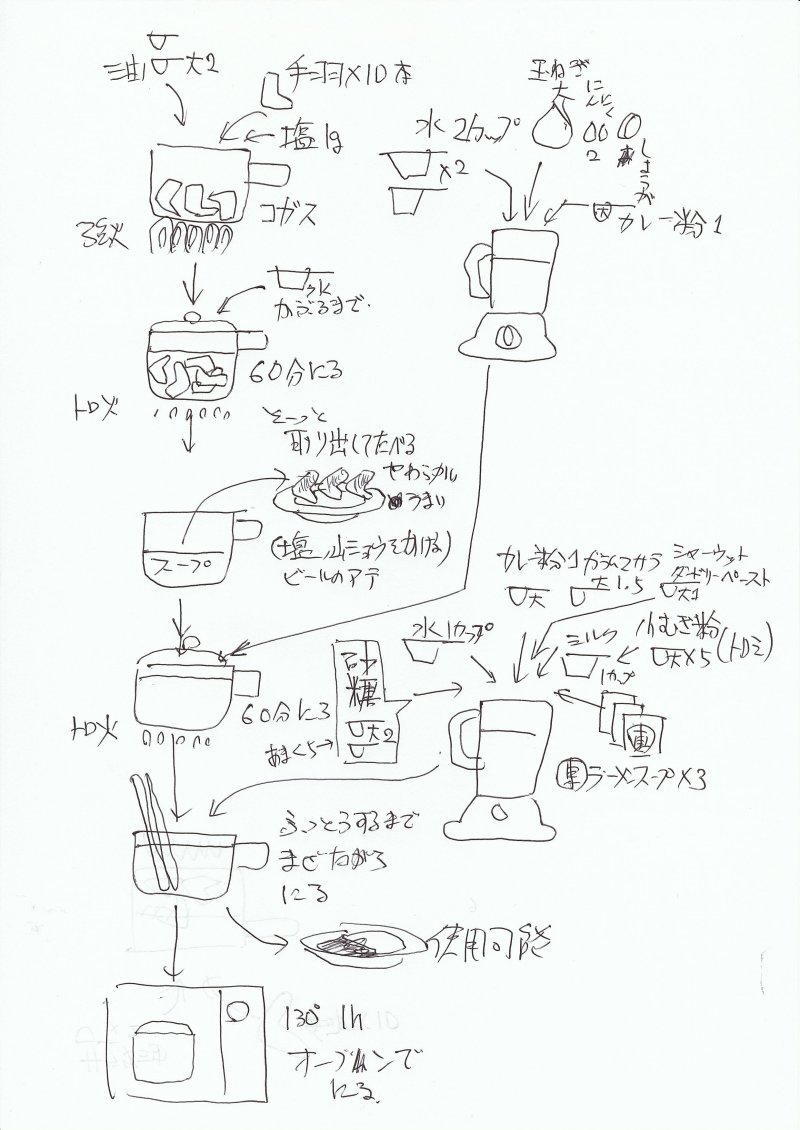 油 大2
手羽×10本
塩1g
コガス
強火
水
かぶるまで
60分にる
トロ火
玉ねぎ
大
にんにく
2
しょうが
水 2カップ
×2
大
カレー粉1
そーっと
取り出してたべる
やわらかい
うまい
スープ
(塩 山ショウをかける)
ビールのアテ
60分にる
トロ火
カレー粉1
大
ガラムマサラ
大1.5
シャーウッド
タンドリーペースト
大1
水1カップ
ミルク
1カップ
小むぎ粉
大×5(トロミ)
砂糖
大2
あまくち→
軍
軍ラーメンスープ×3
ふっとうするまで
まぜながら
にる
使用可能
130° 1h
オーブンで
にる